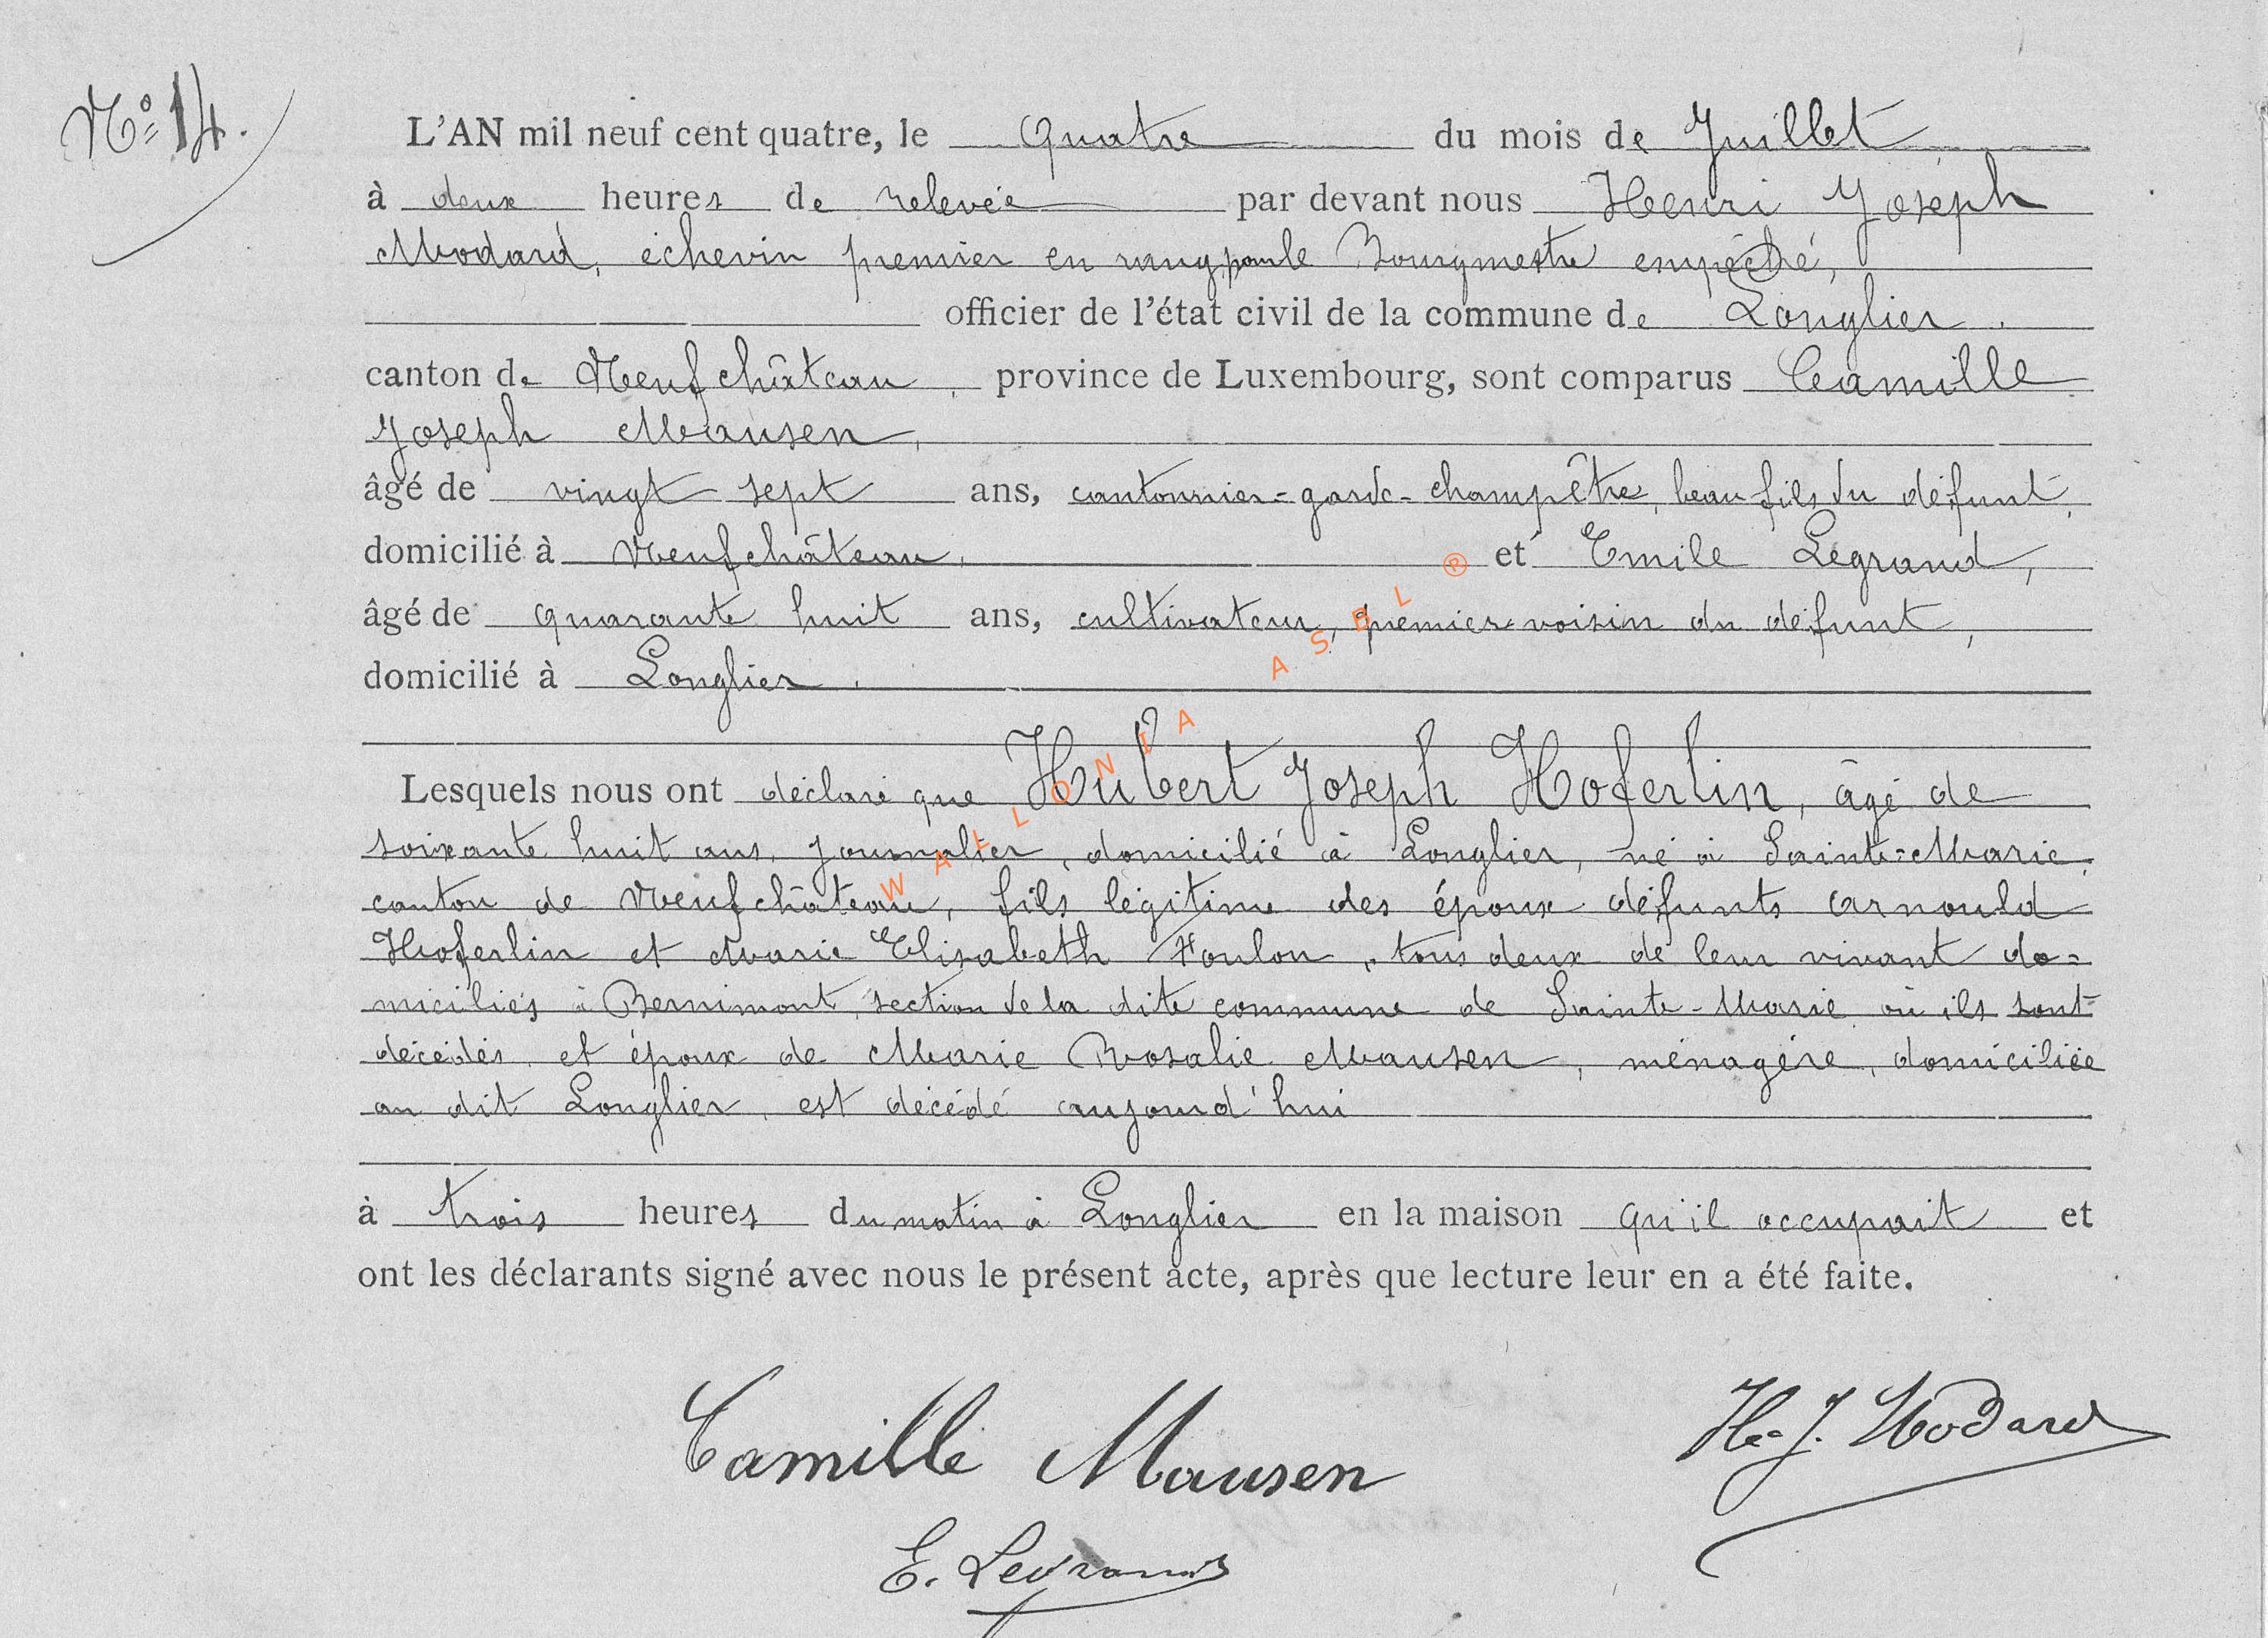 N° 14.
L'AN mil neuf cent quatre, le Quatre du mois de Juillet
à deux heures de relevée par devant nous Henri Joseph
Modard, échevin premier en rang, pour le Bourgmestre empêché,
officier de l'état civil de la commune de Longlier.
canton de Neufchâteau, province de Luxembourg, sont comparus Camille
Joseph Mausen,
âgé de vingt sept ans, cantonnier-garde-champêtre, beau fils du défunt,
domicilié à Neufchâteau, et Emile Legrand,
âgé de quarante huit ans, cultivateur, premier voisin du défunt,
domicilié à Longlier.
Lesquels nous ont déclaré que Hubert Joseph Hoferlin, âgé de
soixante huit ans, journalier, domicilié à Longlier, né à Sainte=Marie,
canton de Neufchâteau, fils légitime des époux défunts Arnould
Hoferlin et Marie Elisabeth Foulon, tous deux de leur vivant do=
miciliés à Bernimont, section de la dite commune de Sainte-Marie où ils sont
décédés, et époux de Marie Rosalie Mausen, ménagère, domiciliée
au dit Longlier, est décédé aujourd'hui
à trois heures du matin à Longlier en la maison qu'il occupait et
ont les déclarants signé avec nous le présent acte, après que lecture leur en a été faite.
Camille Mausen
H.-J. Modard
E. Legrand
WALLONIA ASBL ®